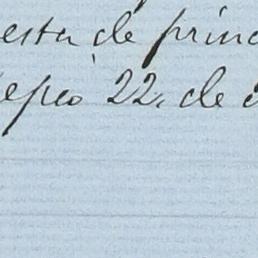 esta de princ
epco 22, de